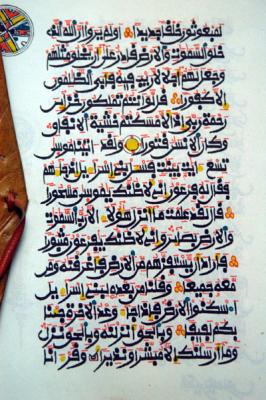 لمبعوثون خلقا جديدا أولم يروا أن الله الذي
خلق السموت والارض قادر على أن يخلق مثلهم
وجعل لهم أجلا لا ريب فيه فأبى الظلمون
إلا كفورا قل لو أنتم تملكون خزائن
رحمة ربي إذا لأمسكتم خشية الانفاق
وكان الانسن قتورا ولقد اتينا موسى
تسع ايت بينت فسئل بني إسراءيل إذ جاءهم
فقال له فرعون إني لأظنك يموسى مسحورا
قال لقد علمت ما أنزل هؤلاء إلا رب السموت
والارض بصائر وإني لأظنك يفرعون مثبورا
فأراد أن يستفزهم من الارض فأغرقنه ومن
معه جميعا وقلنا من بعده لبني إسراءيل
اسكنوا الارض فإذا جاء وعد الاخرة جئنا
بكم لفيفا وبالحق أنزلنه وبالحق نزل
وما أرسلنك إلا مبشرا ونذيرا وقرءانا